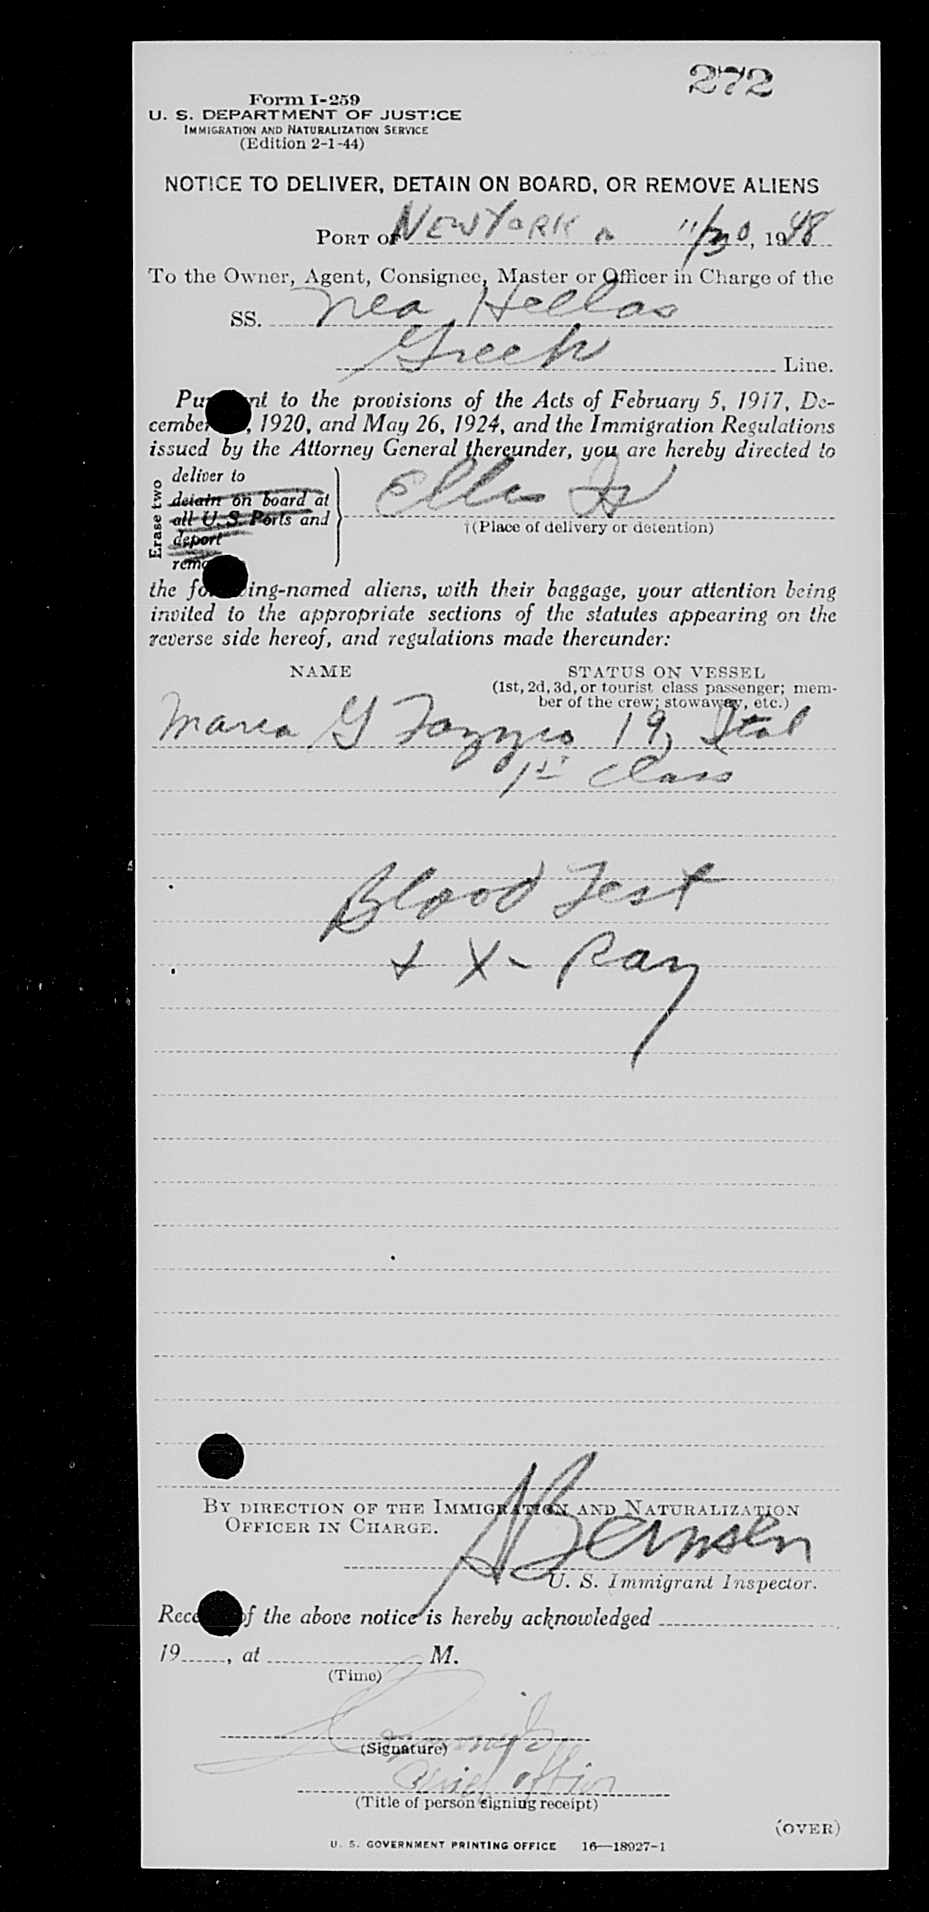 272
Form I-259
U. S. DEPARTMENT OF JUSTICE
IMMIGRATION AND NATURALIZATION SERVICE
(Edition 2-1-44)
NOTICE TO DELIVER, DETAIN ON BOARD, OR REMOVE ALIENS
PORT OF NEW YORK 11/30, 1948
To the Owner, Agent, Consignee, Master or Officer in Charge of the
SS. Nea Hellas
Greek Line.
Pu nt to the provisions of the Acts of February 5, 1917, De-
cember , 1920, and May 26, 1924, and the Immigration Regulations
issued by the Attorney General thereunder, you are hereby directed to
Erase two
deliver to
detain on board at
all U. S. Ports and
deport
remo
Ellis Is
†(Place of delivery or detention)
the fo ing-named aliens, with their baggage, your attention being
invited to the appropriate sections of the statutes appearing on the
reverse side hereof, and regulations made thereunder:
NAME STATUS ON VESSEL
(1st, 2d, 3d, or tourist class passenger; mem-
ber of the crew; stowaway, etc.)
Maria G 19, Ital
1st Class
Blood Test
+ X-Ray
BY DIRECTION OF THE IMMIGRATION AND NATURALIZATION
OFFICER IN CHARGE.
U. S. Immigrant Inspector.
Rece of the above notice is hereby acknowledged
19 , at M.
(Time)
(Signature)
Chief Officer
(Title of person signing receipt)
(OVER)
U. S. GOVERNMENT PRINTING OFFICE 16—18927-1